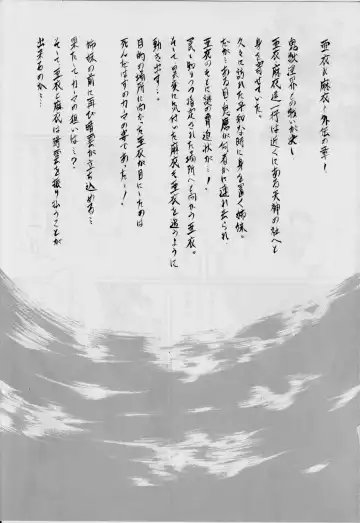 亜衣と麻衣・外伝の章！
鬼獣淫界との戦いが決し
亜衣麻衣達一行は近くにある天神の社へと
身を寄せていた。
久々に訪れた平和な時に身を置く姉妹。
だが…ある日、鬼麿が何者かに連れ去られ、
亜衣のもとに謎の脅迫状が…！
罠と知りつつ指定された場所へと向かう亜衣。
そして異変に気付いた麻衣も亜衣を追うように
動き出す…。
目的の場所に向かった亜衣が目にしたのは
死んだはずのカーマの姿であった…！
姉妹の前に再び暗雲が立ち込める…
果たしてカーマの狙いは…？
そして亜衣と麻衣は暗雲を振り払うことが
出来るのか…